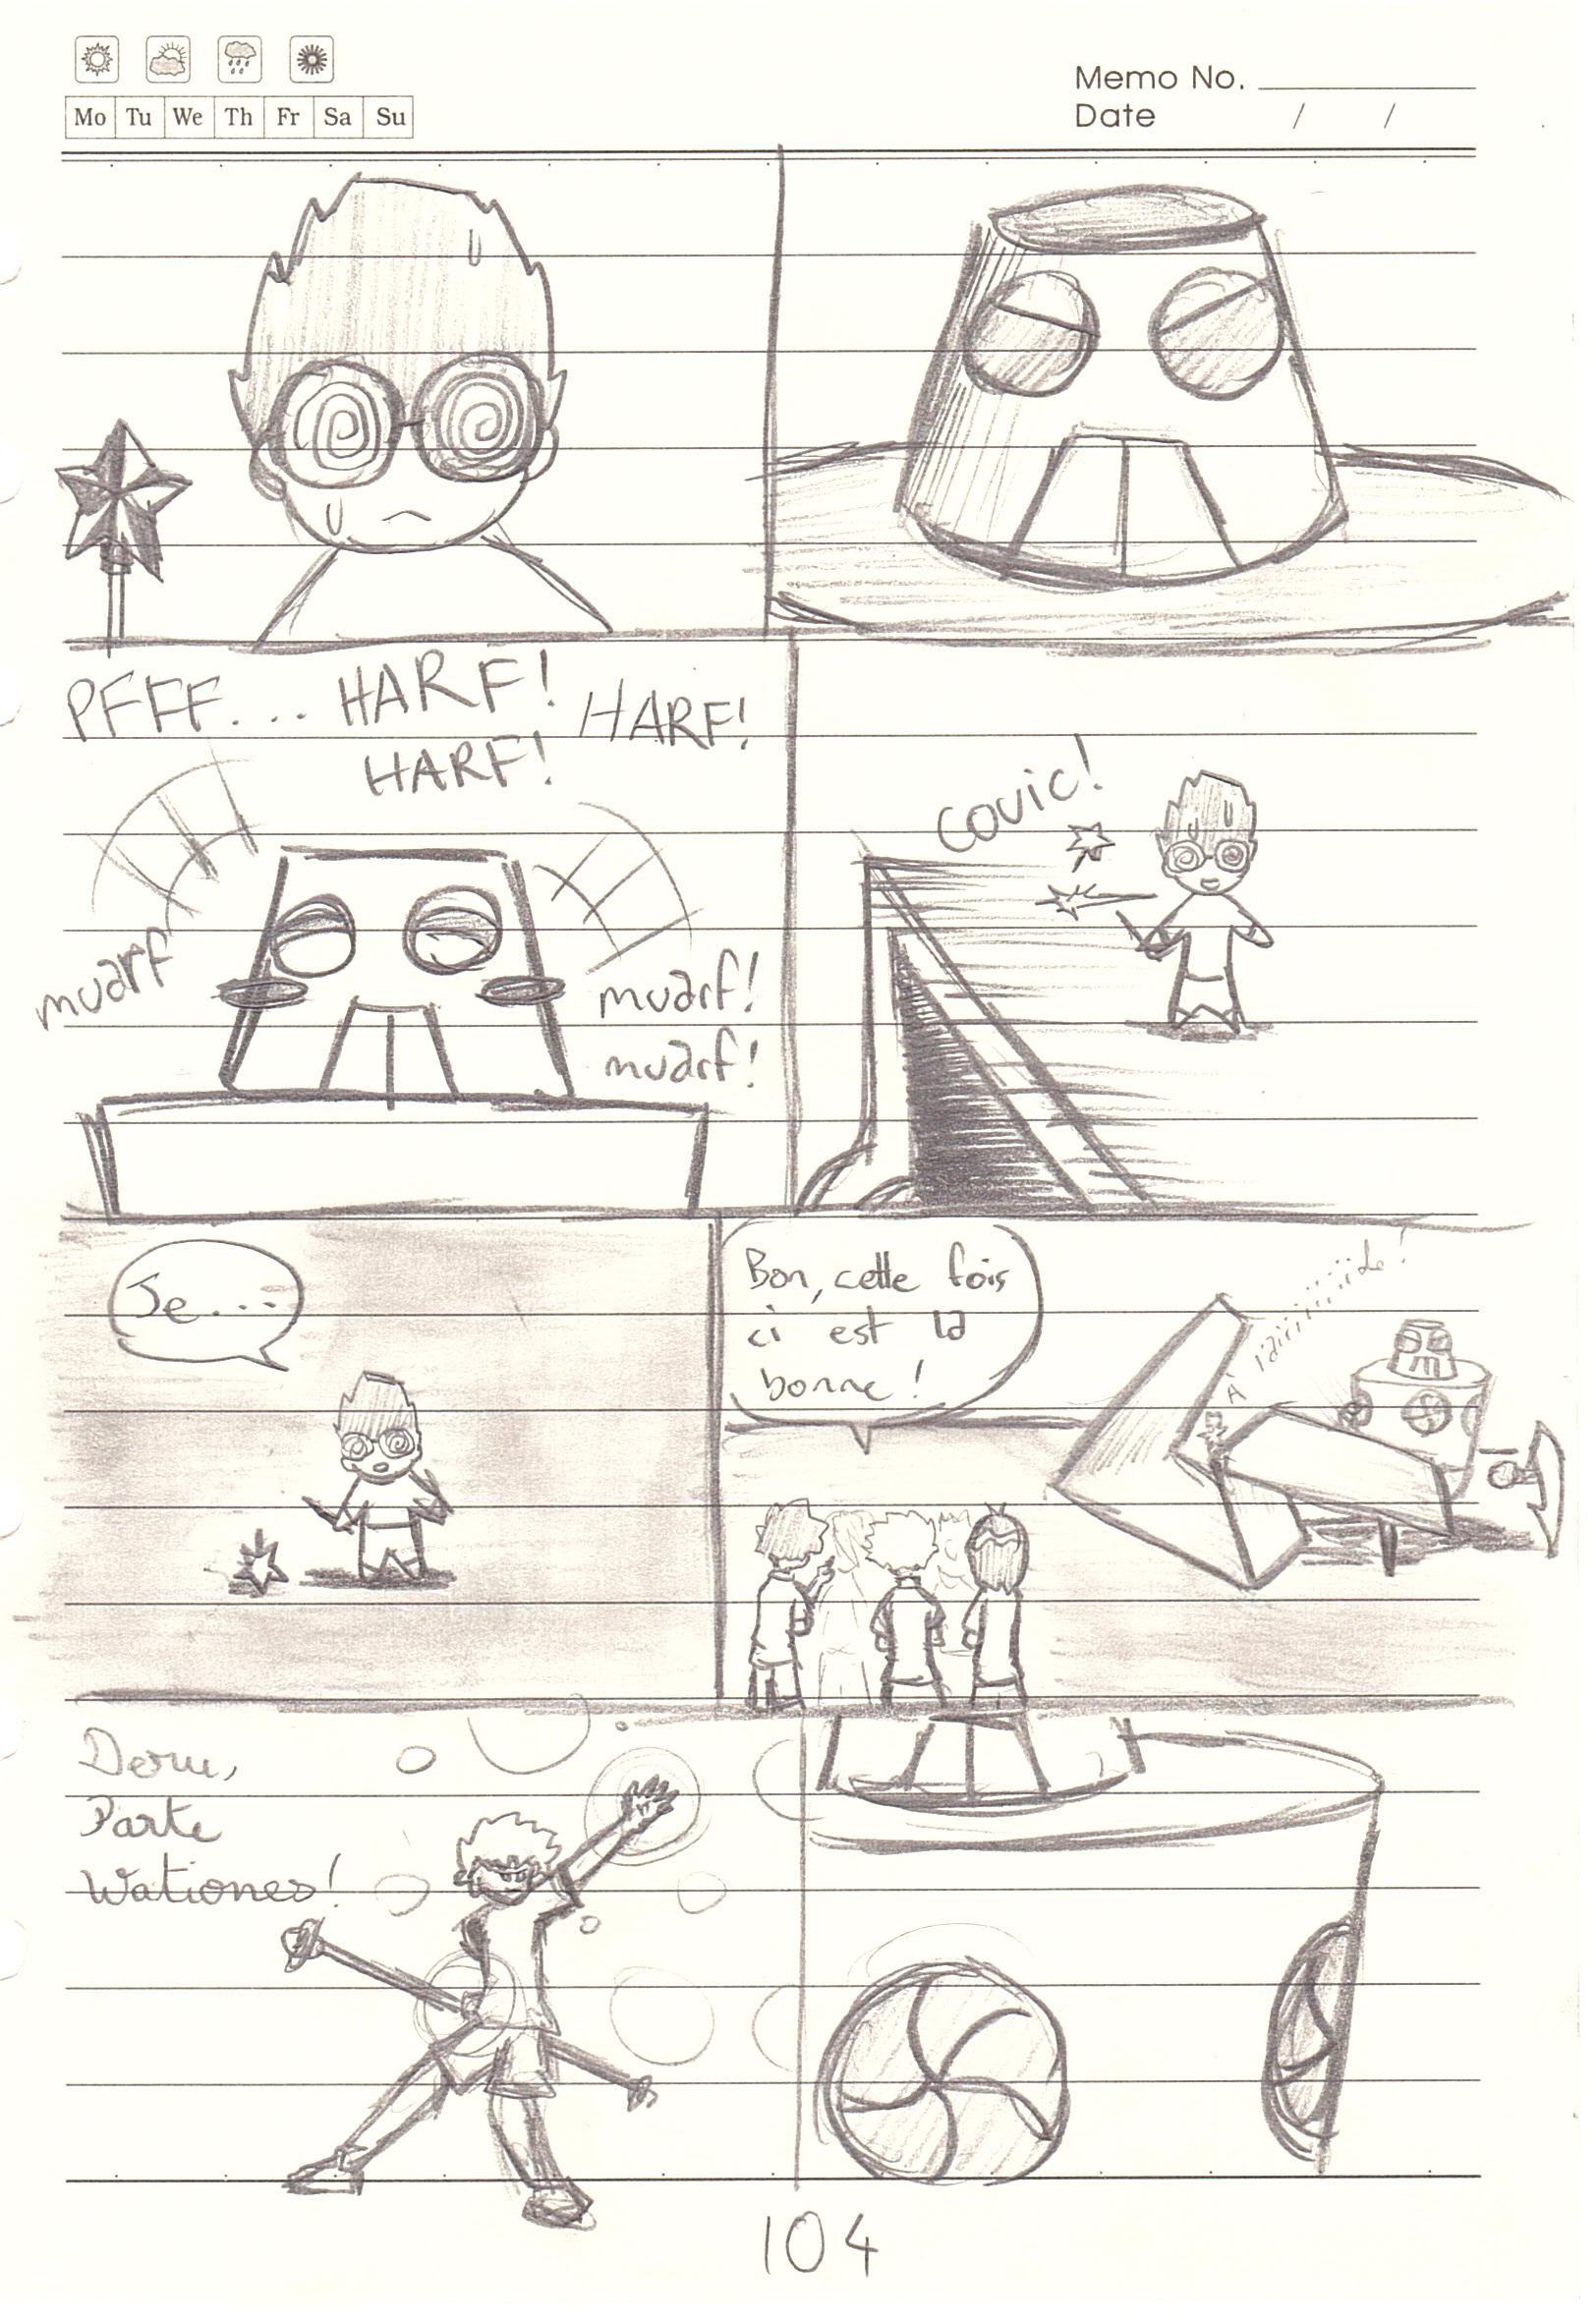 Mo Tu We Th Fr Sa Su
Memo No.
Date / /
PFFF... HARF! HARF!
HARF!
muarf
muarf!
muarf!
Couic!
Je...
Bon, cette fois
ci est la
bonne!
À l'aiiiiiiiiide!
Deru,
Parte
Wationes!
104